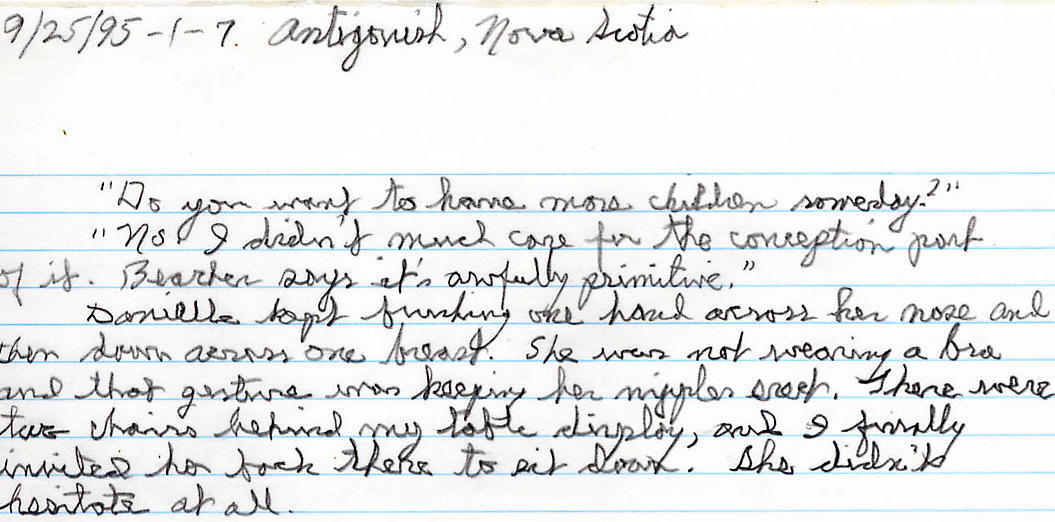 9/25/95-1-7. Antigonish, Nova Scotia
"Do you want to have more children someday?"
"No. I didn't much care for the conception part
of it. Beecher says it's awfully primitive."
Danielle kept brushing one hand across her nose and
then down across one breast. She was not wearing a bra
and that gesture was keeping her nipples erect. There were
two chairs behind my table display, and I finally
invited her back there to sit down. She didn't
hesitate at all.